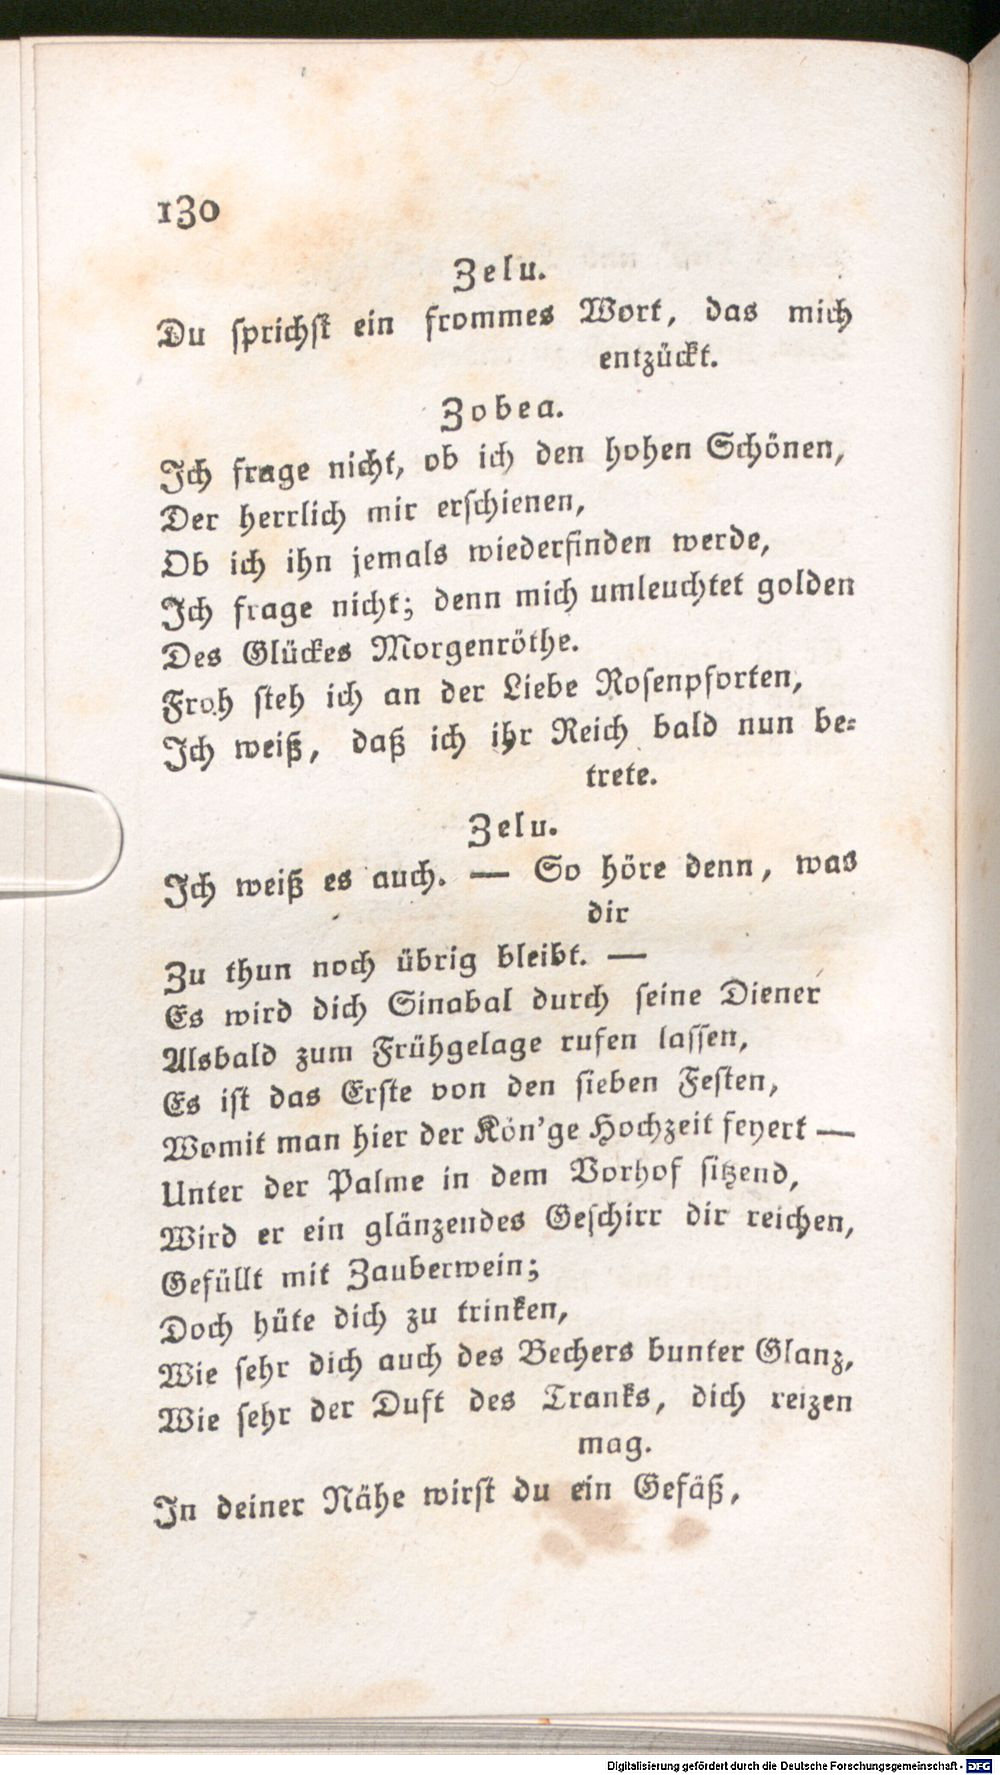 130
Zelu.
Du sprichst ein frommes Wort, das mich
entzückt.
Zobea.
Ich frage nicht, ob ich den hohen Schönen,
Der herrlich mir erschienen,
Ob ich ihn jemals wiederfinden werde,
Ich frage nicht; denn mich umleuchtet golden
Des Glückes Morgenröthe.
Froh steh ich an der Liebe Rosenpforten,
Ich weiß, daß ich ihr Reich bald nun be-
trete.
Zelu.
Ich weiß es auch. — So höre denn, was
dir
Zu thun noch übrig bleibt. —
Es wird dich Sinabal durch seine Diener
Alsbald zum Frühgelage rufen lassen,
Es ist das Erste von den sieben Festen,
Womit man hier der Kön'ge Hochzeit feyert —
Unter der Palme in dem Vorhof sitzend,
Wird er ein glänzendes Geschirr dir reichen,
Gefüllt mit Zauberwein;
Doch hüte dich zu trinken,
Wie sehr dich auch des Bechers bunter Glanz,
Wie sehr der Duft des Tranks, dich reizen
mag.
In deiner Nähe wirst du ein Gefäß,
Digitalisierung gefördert durch die Deutsche Forschungsgemeinschaft - DFG